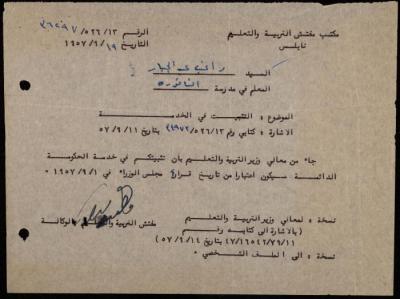 مكتب مفتش التربية والتعليم
نابلس
الرقم ٥٢٦/١٣/
التاريخ ١٩/٩/١٩٥٧
السيد
المعلم في مدرسة
الموضوع : التثبيت في الخدمة
الاشارة : كتابي رقم ٥٢٦/١٣/ بتاريخ ٥٧/٩/١١
جاء من معالي وزير التربية والتعليم بأن تثبيتكم في خدمة الحكومة
الدائمة سيكون اعتبارا من تاريخ قرار مجلس الوزراء في ١٩٥٧/٩/١ ٠
مفتش التربية والتعليم بالوكالة
نسخة : لمعالي وزير التربية والتعليم
(بالاشارة الى كتابه رقم
بتاريخ ٥٧/٩/١٤)
نسخة : الى الملف الشخصي ٠